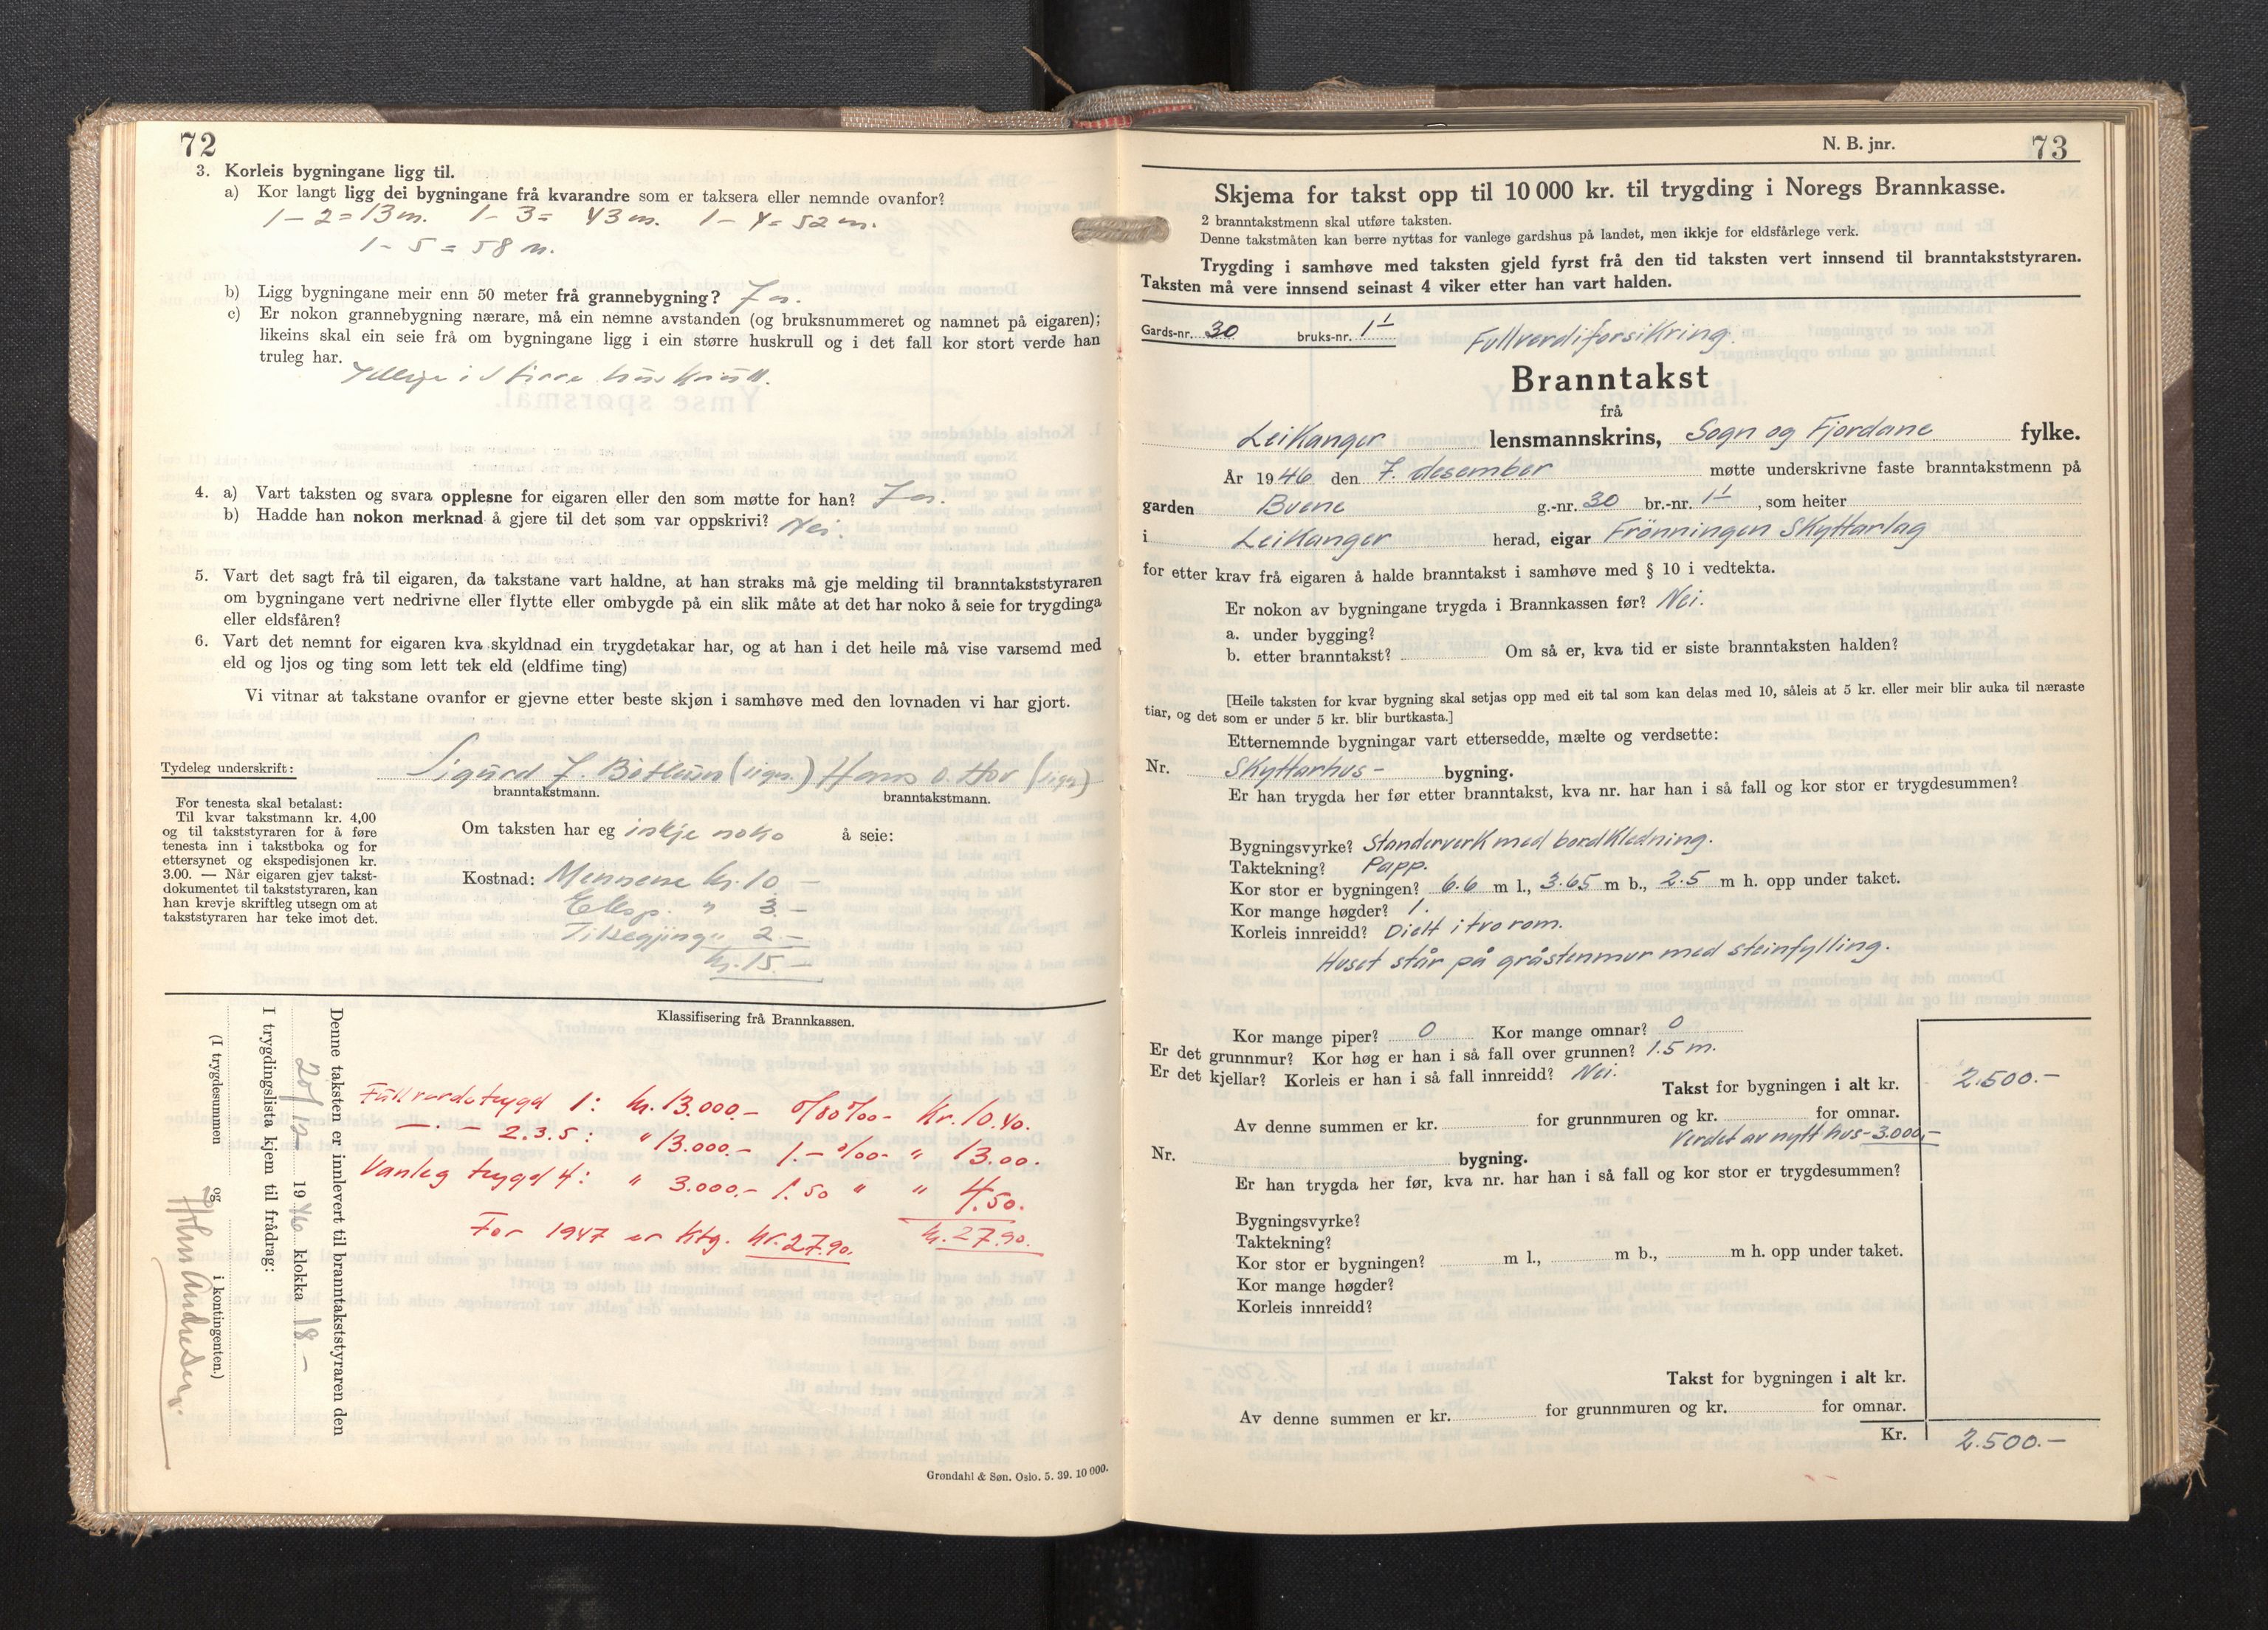 72
3. Korleis bygningane ligg til.
a) Kor langt ligg dei bygningane frå kvarandre som er taksera eller nemnde ovanfor?
1 - 2 = 13 m. 1 - 3 = 43 m. 1 - 4 = 52 m.
1 - 5 = 58 m.
b) Ligg bygningane meir enn 50 meter frå grannebygning? Ja.
c) Er nokon grannebygning nærare, må ein nemne avstanden (og bruksnummeret og namnet på eigaren);
likeins skal ein seie frå om bygningane ligg i ein større huskrull og i det fall kor stort verde han
truleg har.
Ikkje i større huskrull.
4. a) Vart taksten og svara opplesne for eigaren eller den som møtte for han? Ja.
b) Hadde han nokon merknad å gjere til det som var oppskrivi? Nei.
5. Vart det sagt frå til eigaren, da takstane vart haldne, at han straks må gje melding til branntakststyraren
om bygningane vert nedrivne eller flytte eller ombygde på ein slik måte at det har noko å seie for trygdinga
eller eldsfåren?
6. Vart det nemnt for eigaren kva skyldnad ein trygdetakar har, og at han i det heile må vise varsemd med
eld og ljos og ting som lett tek eld (eldfime ting)
Vi vitnar at takstane ovanfor er gjevne etter beste skjøn i samhøve med den lovnaden vi har gjort.
Tydeleg underskrift: Sigurd J. Bøthun (sign.) Hans O. Hov (sign)
branntakstmann. branntakstmann.
For tenesta skal betalast:
Til kvar takstmann kr. 4,00
og til takststyraren for å føre
tenesta inn i takstboka og for
ettersynet og ekspedisjonen kr.
3.00. — Når eigaren gjev takst-
dokumentet til takststyraren, kan
han krevje skriftleg utsegn om at
takststyraren har teke imot det.
Om taksten har eg inkje noko å seie:
Kostnad: Mennene kr. 10 -
Eksp. " 3 -
Tilsegjing " 2 -
kr. 15. -
Klassifisering frå Brannkassen.
Denne taksten er innlevert til branntakststyraren den
20/12 1946 klokka 18 -
I trygdingslista kjem til frådrag:
(I trygdesummen og i kontingenten.)
John Andersen.
Fullverdetrygd 1: kr. 13.000.- 0/80 ‰ - Kr. 10.40.
—. — 2.3.5: " 13.000.- 1.- ‰ - " 13.00.
Vanleg trygd 4: " 3.000.- 1.50 " " 4.50.
kr. 27.90.
For 1947 er ktg. kr. 27.90.
Grøndahl & Søn. Oslo. 5. 39. 10 000.
N. B. jnr. 73
Skjema for takst opp til 10 000 kr. til trygding i Noregs Brannkasse.
2 branntakstmenn skal utføre taksten.
Denne takstmåten kan berre nyttas for vanlege gardshus på landet, men ikkje for eldsfårlege verk.
Trygding i samhøve med taksten gjeld fyrst frå den tid taksten vert innsend til branntakststyraren.
Taksten må vere innsend seinast 4 viker etter han vart halden.
Gards-nr. 30 bruks-nr. 1 1 Fullverdiforsikring.
Branntakst
frå
Leikanger lensmannskrins, Sogn og Fjordane fylke.
År 1946 den 7. desember møtte underskrivne faste branntakstmenn på
garden Buene g.-nr. 30 br.-nr. 1 1, som heiter
i Leikanger herad, eigar Frönningen Skyttarlag
for etter krav frå eigaren å halde branntakst i samhøve med § 10 i vedtekta.
Er nokon av bygningane trygda i Brannkassen før? Nei.
a. under bygging?
b. etter branntakst? Om så er, kva tid er siste branntaksten halden?
[Heile taksten for kvar bygning skal setjas opp med eit tal som kan delas med 10, såleis at 5 kr. eller meir blir auka til næraste
tiar, og det som er under 5 kr. blir burtkasta.]
Etternemnde bygningar vart ettersedde, mælte og verdsette:
Nr. Skyttarhus - bygning.
Er han trygda her før etter branntakst, kva nr. har han i så fall og kor stor er trygdesummen?
Bygningsvyrke? Standerverk med bordkledning.
Taktekning? Papp.
Kor stor er bygningen? 6.6 m l., 3.65 m b., 2.5 m h. opp under taket.
Kor mange høgder? 1.
Korleis innreidd? Dielt i tvo rom.
Huset står på gråstenmur med steinfylling.
Kor mange piper? 0 Kor mange omnar? 0
Er det grunnmur? Kor høg er han i så fall over grunnen? 1.5 m.
Er det kjellar? Korleis er han i så fall innreidd? Nei.
Takst for bygningen i alt kr. 2.500.-
Av denne summen er kr. for grunnmuren og kr. for omnar.
Verdet av nytt hus - 3.000,-
Nr. bygning.
Er han trygda her før, kva nr. har han i så fall og kor stor er trygdesummen?
Bygningsvyrke?
Taktekning?
Kor stor er bygningen? m l., m b., m h. opp under taket.
Kor mange høgder?
Korleis innreidd?
Takst for bygningen i alt kr.
Av denne summen er kr. for grunnmuren og kr. for omnar.
Kr. 2.500.-